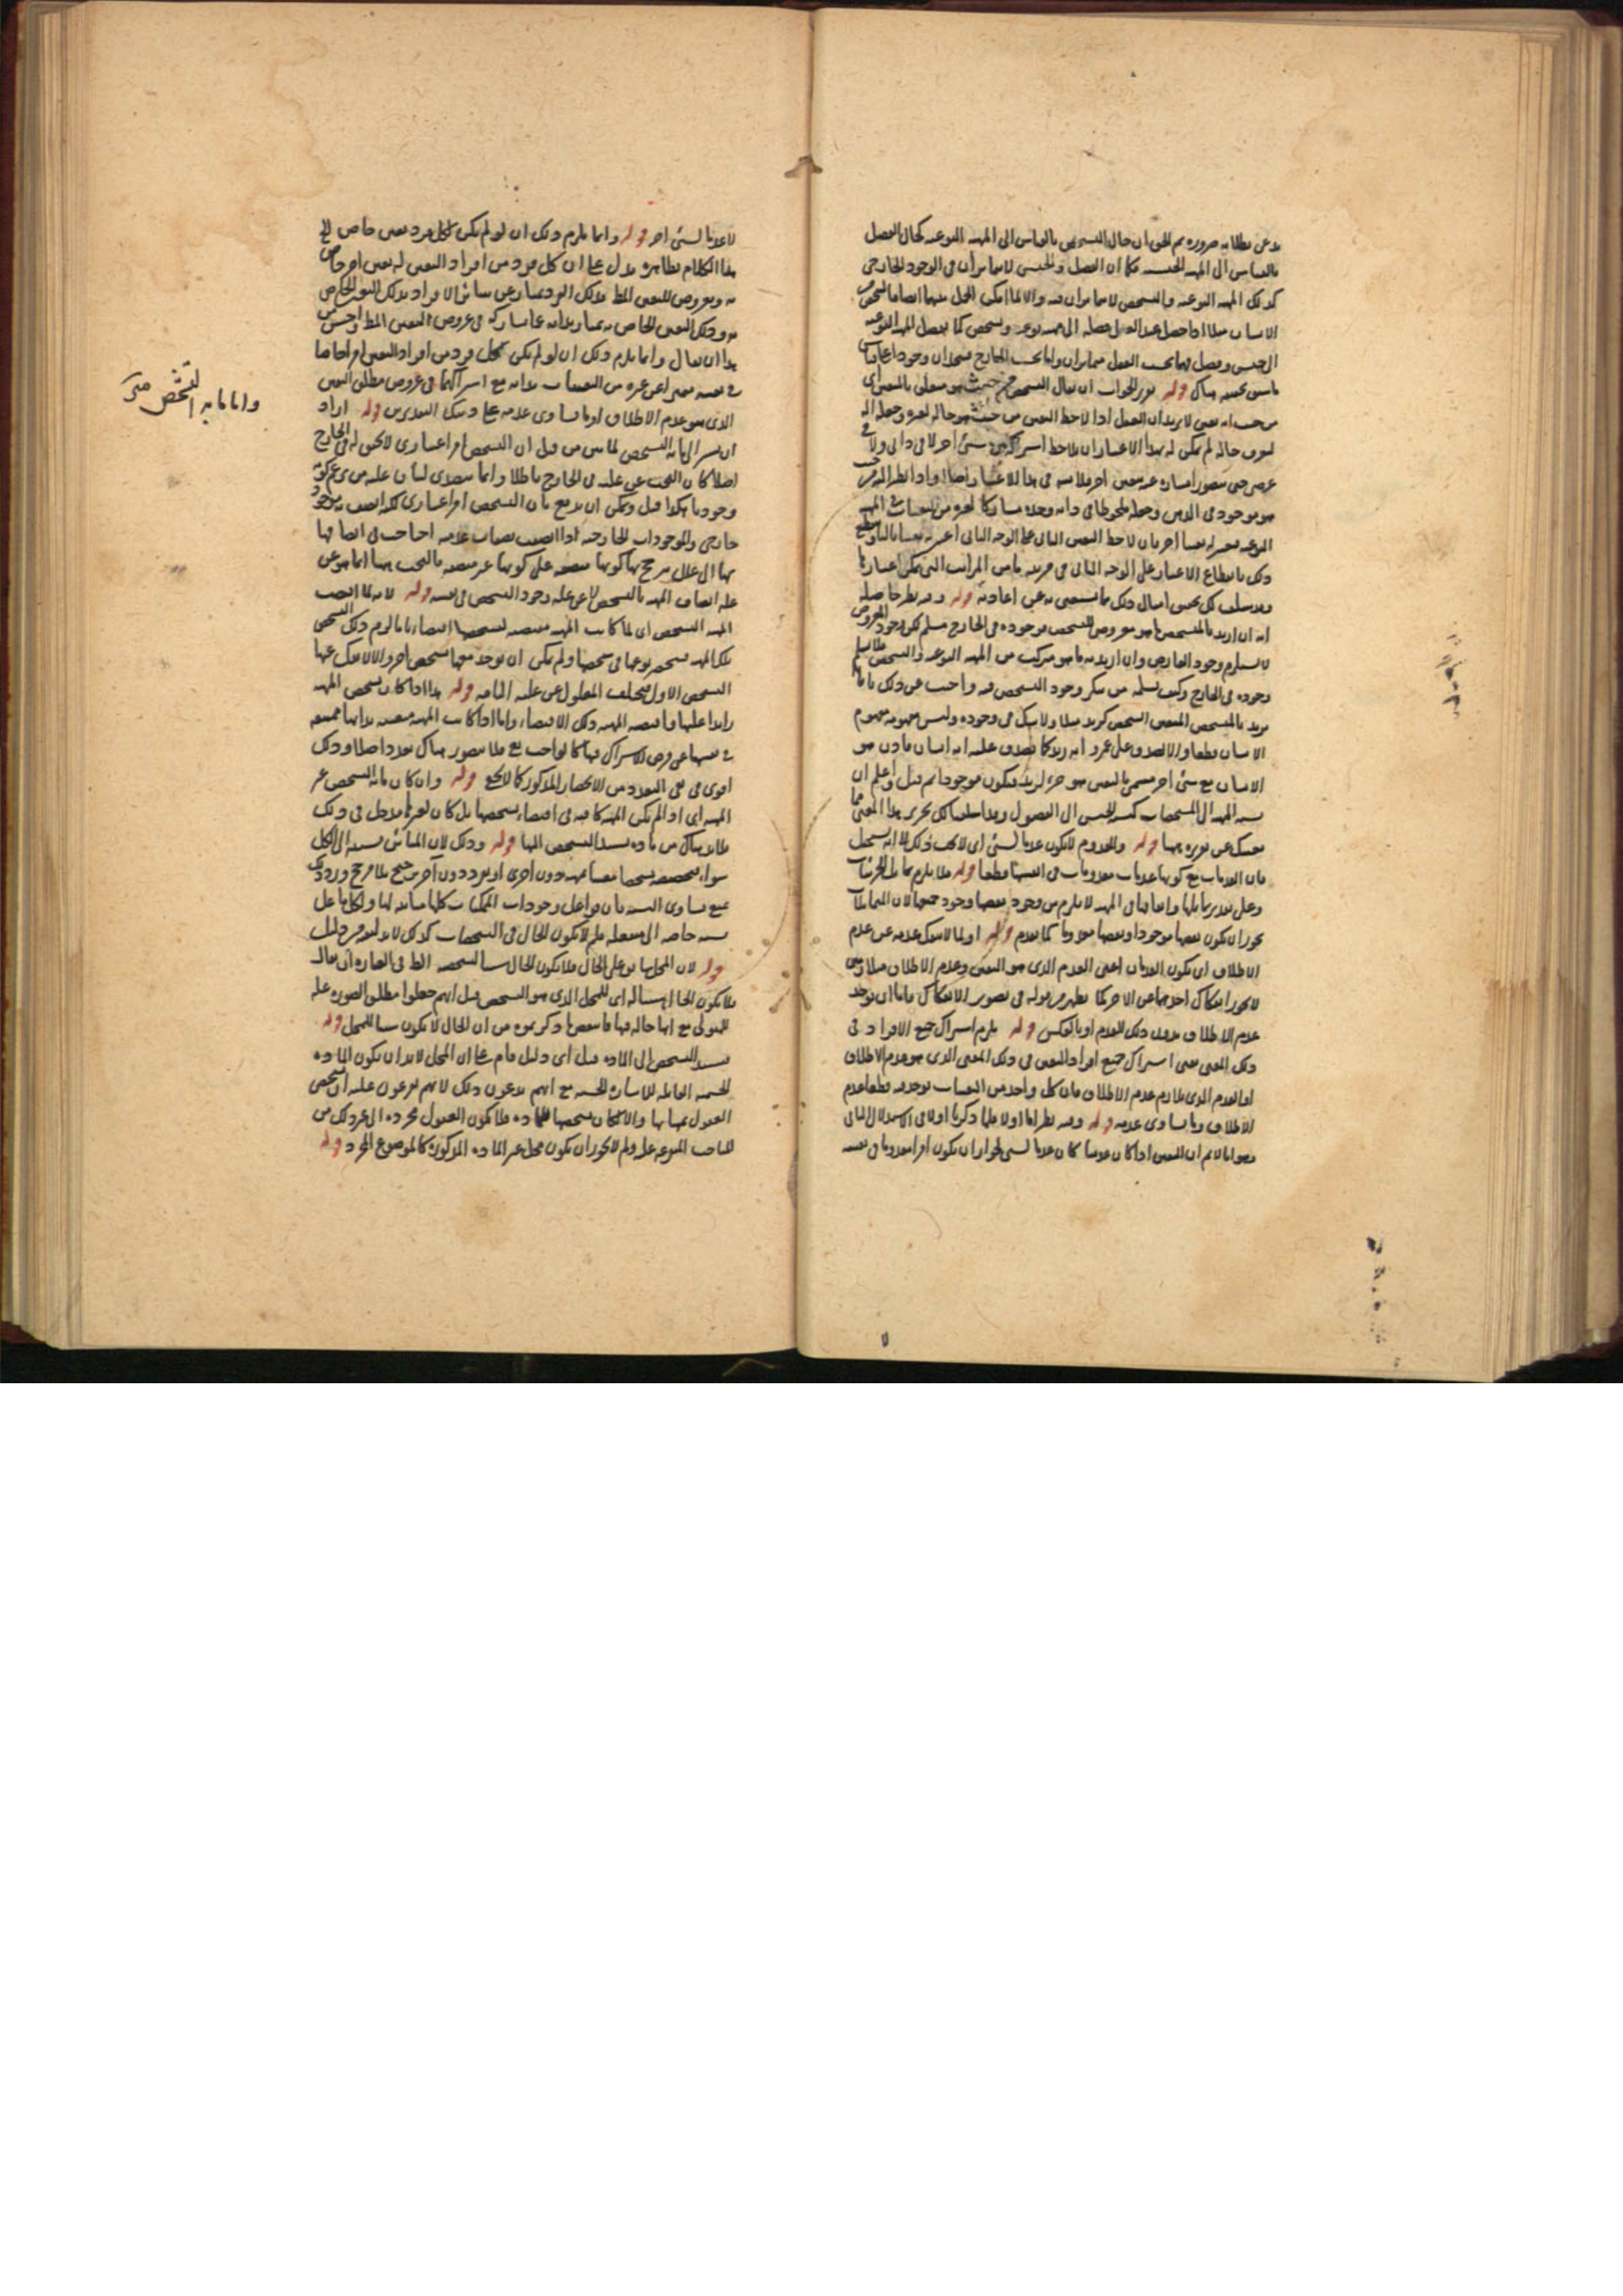 بدعى بطلانه ضرورة نعم الحق ان حال التشخص بالقياس الى المهية النوعية كحال الفصل
بالقياس الى المهية الجنسية فكما ان الفصل والجنس لا يتمايزان فى الوجود الخارجى
كذلك المهية النوعية والتشخص لا يتمايزان فيه والا لما امكن الحمل بينهما ايضا فالشخص
الانسان مثلا اذا حصل عند العقل فصله الى مهية نوعية وتشخص كما يفصل المهية النوعية
الى جنس وفصل فهما بحسب العقل متمايزان واما بحسب الخارج فمتحدان وجودا
قوله تقرير الجواب ان يقال التشخص من حيث هو متعلق بالمتعين اى
من حيث انه تعين لا يريد ان العقل اذا لاحظ التعين من حيث هو حالة لغيره وجعله الة
لتعرف حاله لم يمكن له بهذا الاعتبار ان يلاحظ اشتراكه بين شئ اخر لا فى ذاتى ولا فى
هو موجود فى الذهن وجعله ملحوظا فى ذاته وجده مشاركا لغيره من التعينات فى المهية
النوعية
ذلك بانقطاع الاعتبار على الوجه الثانى فى مرتبة ما من المراتب التى يمكن اعتبارها
وقد سلف لك تحقيق امثال ذلك بما يستغنى به عن اعادته قوله وفيه نظر حاصله
انه ان اريد بالمتشخص ما هو معروض التشخص فوجوده فى الخارج مسلم لكن وجود المعروض
لا يستلزم وجود العارض وان اريد به ما هو مركب من المهية النوعية والتشخص فلا نسلم
وجوده فى الخارج وكيف نسلمه من ينكر وجود التشخص فيه واجيب عن ذلك بانا
نريد بالمتشخص المتعين الشخص كزيد مثلا ولا شك فى وجوده وليس مفهومه مفهوم
الانسان قطعا والا لصدق على عمرو انه زيد كما يصدق عليه انه انسان فاذن هو
الانسان مع شئ اخر نسميه بالتعين هو جزء لزيد فيكون موجودا ثم قيل واعلم ان
نسبة المهية الى المشخصات كنسبة الجنس الى الفصول وقد اسلفنا لك تحرير هذا المعنى بما
يغنيك عن تقريره ههنا قوله والمعدوم لا يكون عدما لشئ اى لا يجب ذلك لا انه يستحيل
فان العدمات مع كونها عدمات معدومات فى انفسها قطعا قوله فلا يلزم تماثل الجزئيات
وعلى تقدير تماثلها واتفاقها فى المهية لا يلزم من وجود بعضها وجود جميعها لان المتماثلات
يجوز ان يكون بعضها موجودا وبعضها معدوما كما تقدم قوله او لما لا ينفك عدمه عن عدم
الاطلاق اى يكون العدمان اعنى العدم الذى هو التعين وعدم الاطلاق متلازمين
لا يجوز انفكاك احدهما عن الاخر كما يظهر من قوله فى تصوير الانفكاك فاما ان يوجد
عدم الاطلاق بدون ذلك العدم او بالعكس قوله يلزم اشتراك جميع الافراد فى
ذلك المعنى يعنى اشتراك جميع افراد التعين فى ذلك المعنى الذى هو عدم الاطلاق
او العدم الذى يلازم عدم الاطلاق فان كل واحد من التعينات يوجد فيه قطعا عدم
الاطلاق وما يساوى عدمه قوله وفيه نظر اما اولا فلما ذكرنا اولا فى الاستدلال الثانى
وهو انا لا نم ان التعين اذا كان عدميا كان عدما لشئ لجواز ان يكون امرا معدوما فى نفسه
لا عدما لشئ اخر قوله وانما يلزم ذلك ان لو لم يكن لكل فرد تعين خاص الخ
هذا الكلام بظاهره يدل على ان كل فرد من افراد التعين له تعين اخر خاص
به ومعروض للتعين المط فذلك الفرد يمتاز عن سائر الافراد بذلك التعين الخاص
به وذلك التعين الخاص به يمتاز بذاته عما يشاركه فى عروض التعين المط واحسن من
هذا ان يقال وانما يلزم ذلك ان لو لم يكن كل فرد من افراد التعين امرا خاصا
فى نفسه متميزا عن غيره من التعينات بذاته مع اشتراكهما فى عروض مطلق التعين
الذى هو عدم الاطلاق او ما يساوى عدمه على ذينك التقديرين قوله اراد
ان يشير الى ما به التشخص لما بين من قبل ان التشخص امر اعتبارى لا تحقق له فى الخارج
اصلا كان البحث عن علته فى الخارج باطلا وانما يتصدى لبيان علته من يزعم كونه
وجوديا هكذا قيل ويمكن ان يدفع بان التشخص امر اعتبارى لكنه اتصف به موجود
خارجى والموجودات الخارجية اذا اتصفت بصفات عدمية احتاجت فى اتصافها
بها الى علل ترجح بها كونها متصفة على كونها غير متصفة بالبحث ههنا انما هو عن
علة اتصاف المهية بالتشخص لا عن علة وجود التشخص فى نفسه قوله لانه لما اقتضت
المهية التشخص اى لما كانت المهية مقتضية لتشخصها اقتضاء تاما لزم ذلك التشخص
تلك المهية فينحصر نوعها فى شخصها ولم يمكن ان يوجد معها تشخص اخر والا لانفك عنها
التشخص الاول فيتخلف المعلول عن علته التامة قوله هذا اذا كان تشخص المهية
زائدا عليها واقتضته المهية ذلك الاقتضاء واما اذا كانت المهية متعينة بذاتها ممتنعة
فى نفسها عن فرض الاشتراك فيها كالواجب تع فلا يتصور هناك تعدد اصلا وذلك
اقوى فى نفى التعدد من الانحصار المذكور كما لا يخفى قوله وان كان ما به التشخص غير
المهية اى اذا لم تكن المهية كافية فى اقتضاء تشخصها بل كان لغيرها مدخل فى ذلك
فلا بد هناك من مادة يستند التشخص اليها قوله وذلك لان المباين نسبته الى الكل
سواء فتخصيصه تشخصا معينا بمهية دون اخرى او بفرد دون آخر ترجيح بلا مرجح ورد ذلك
بمنع تساوى النسبة فان فواعل وجودات الممكنات كلها مباينة لها ولكل فاعل
نسبة خاصة الى مفعوله فلم لا يكون الحال فى التشخصات كذلك لا بد لنفيه من دليل
قوله لان المحل سابق على الحال فلا يكون الحال سببا لتشخصه الظ فى العبارة ان يقال
فلا يكون الحال سببا له اى للمحل الذى هو التشخص قيل انهم جعلوا مطلق الصورة علة
للهيولى مع انها حالة فيها فانتقض ما ذكرتموه من ان الحال لا يكون سببا للمحل قوله
فيستند التشخص الى المادة قيل اى دليل قام على ان المحل لا بد ان يكون المادة
الجسمية القابلة للاشارة الحسية مع انهم يدعون ذلك لانهم يفرعون عليه ان تشخص
العقول بمهياتها والا لكان تشخصها للمادة فلا يكون العقول مجردة الى غير ذلك من
المباحث المتفرعة عليه ولم لا يجوز ان يكون محل غير المادة المذكورة كالموضوع المجرد قوله
واما ما به التشخص